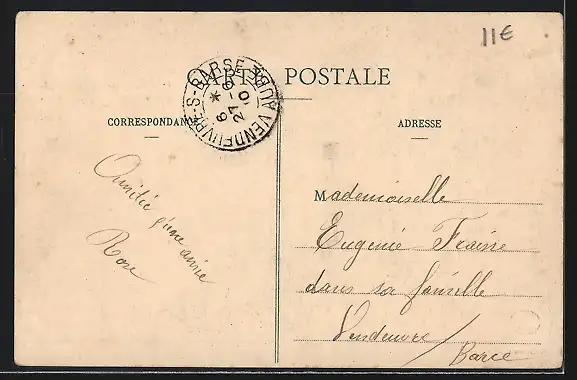 11€
CARTE POSTALE
VENDEUVRE-S-BARSE AUBE
6 *
27 -6
10
CORRESPONDANCE
ADRESSE
Amitié d'une amie
Rose
Mademoiselle
Eugénie Fraisse
dans sa famille
Vendeuvre /
Barse